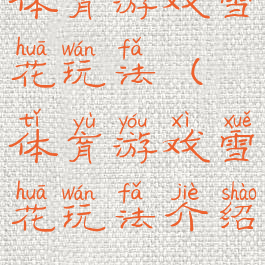 体育游戏雪
huā wán fǎ
花玩法（
tǐ yù yóu xì xuě
体育游戏雪
huā wán fǎ jiè shào
花玩法介绍